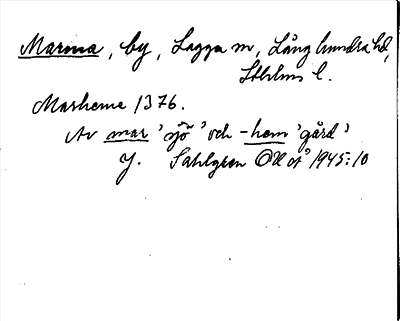 Marma, by, Lagga sn, Långhundra hd,
Sthlms l.
Marheme 1376.
Av mar 'sjö' och -hem 'gård'
J. Sahlgren OUÅ 1945:10